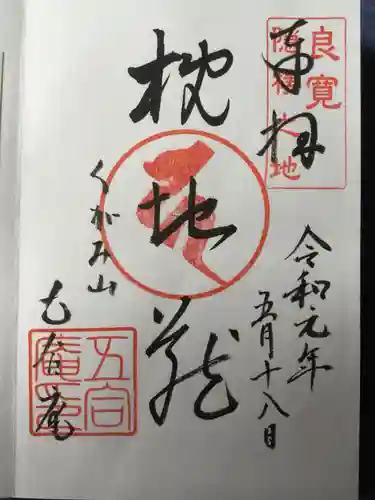 奉拝
良寛
隠棲の地
枕地蔵
令和元年
五月十八日
くがみ山
五合庵
五合
庵